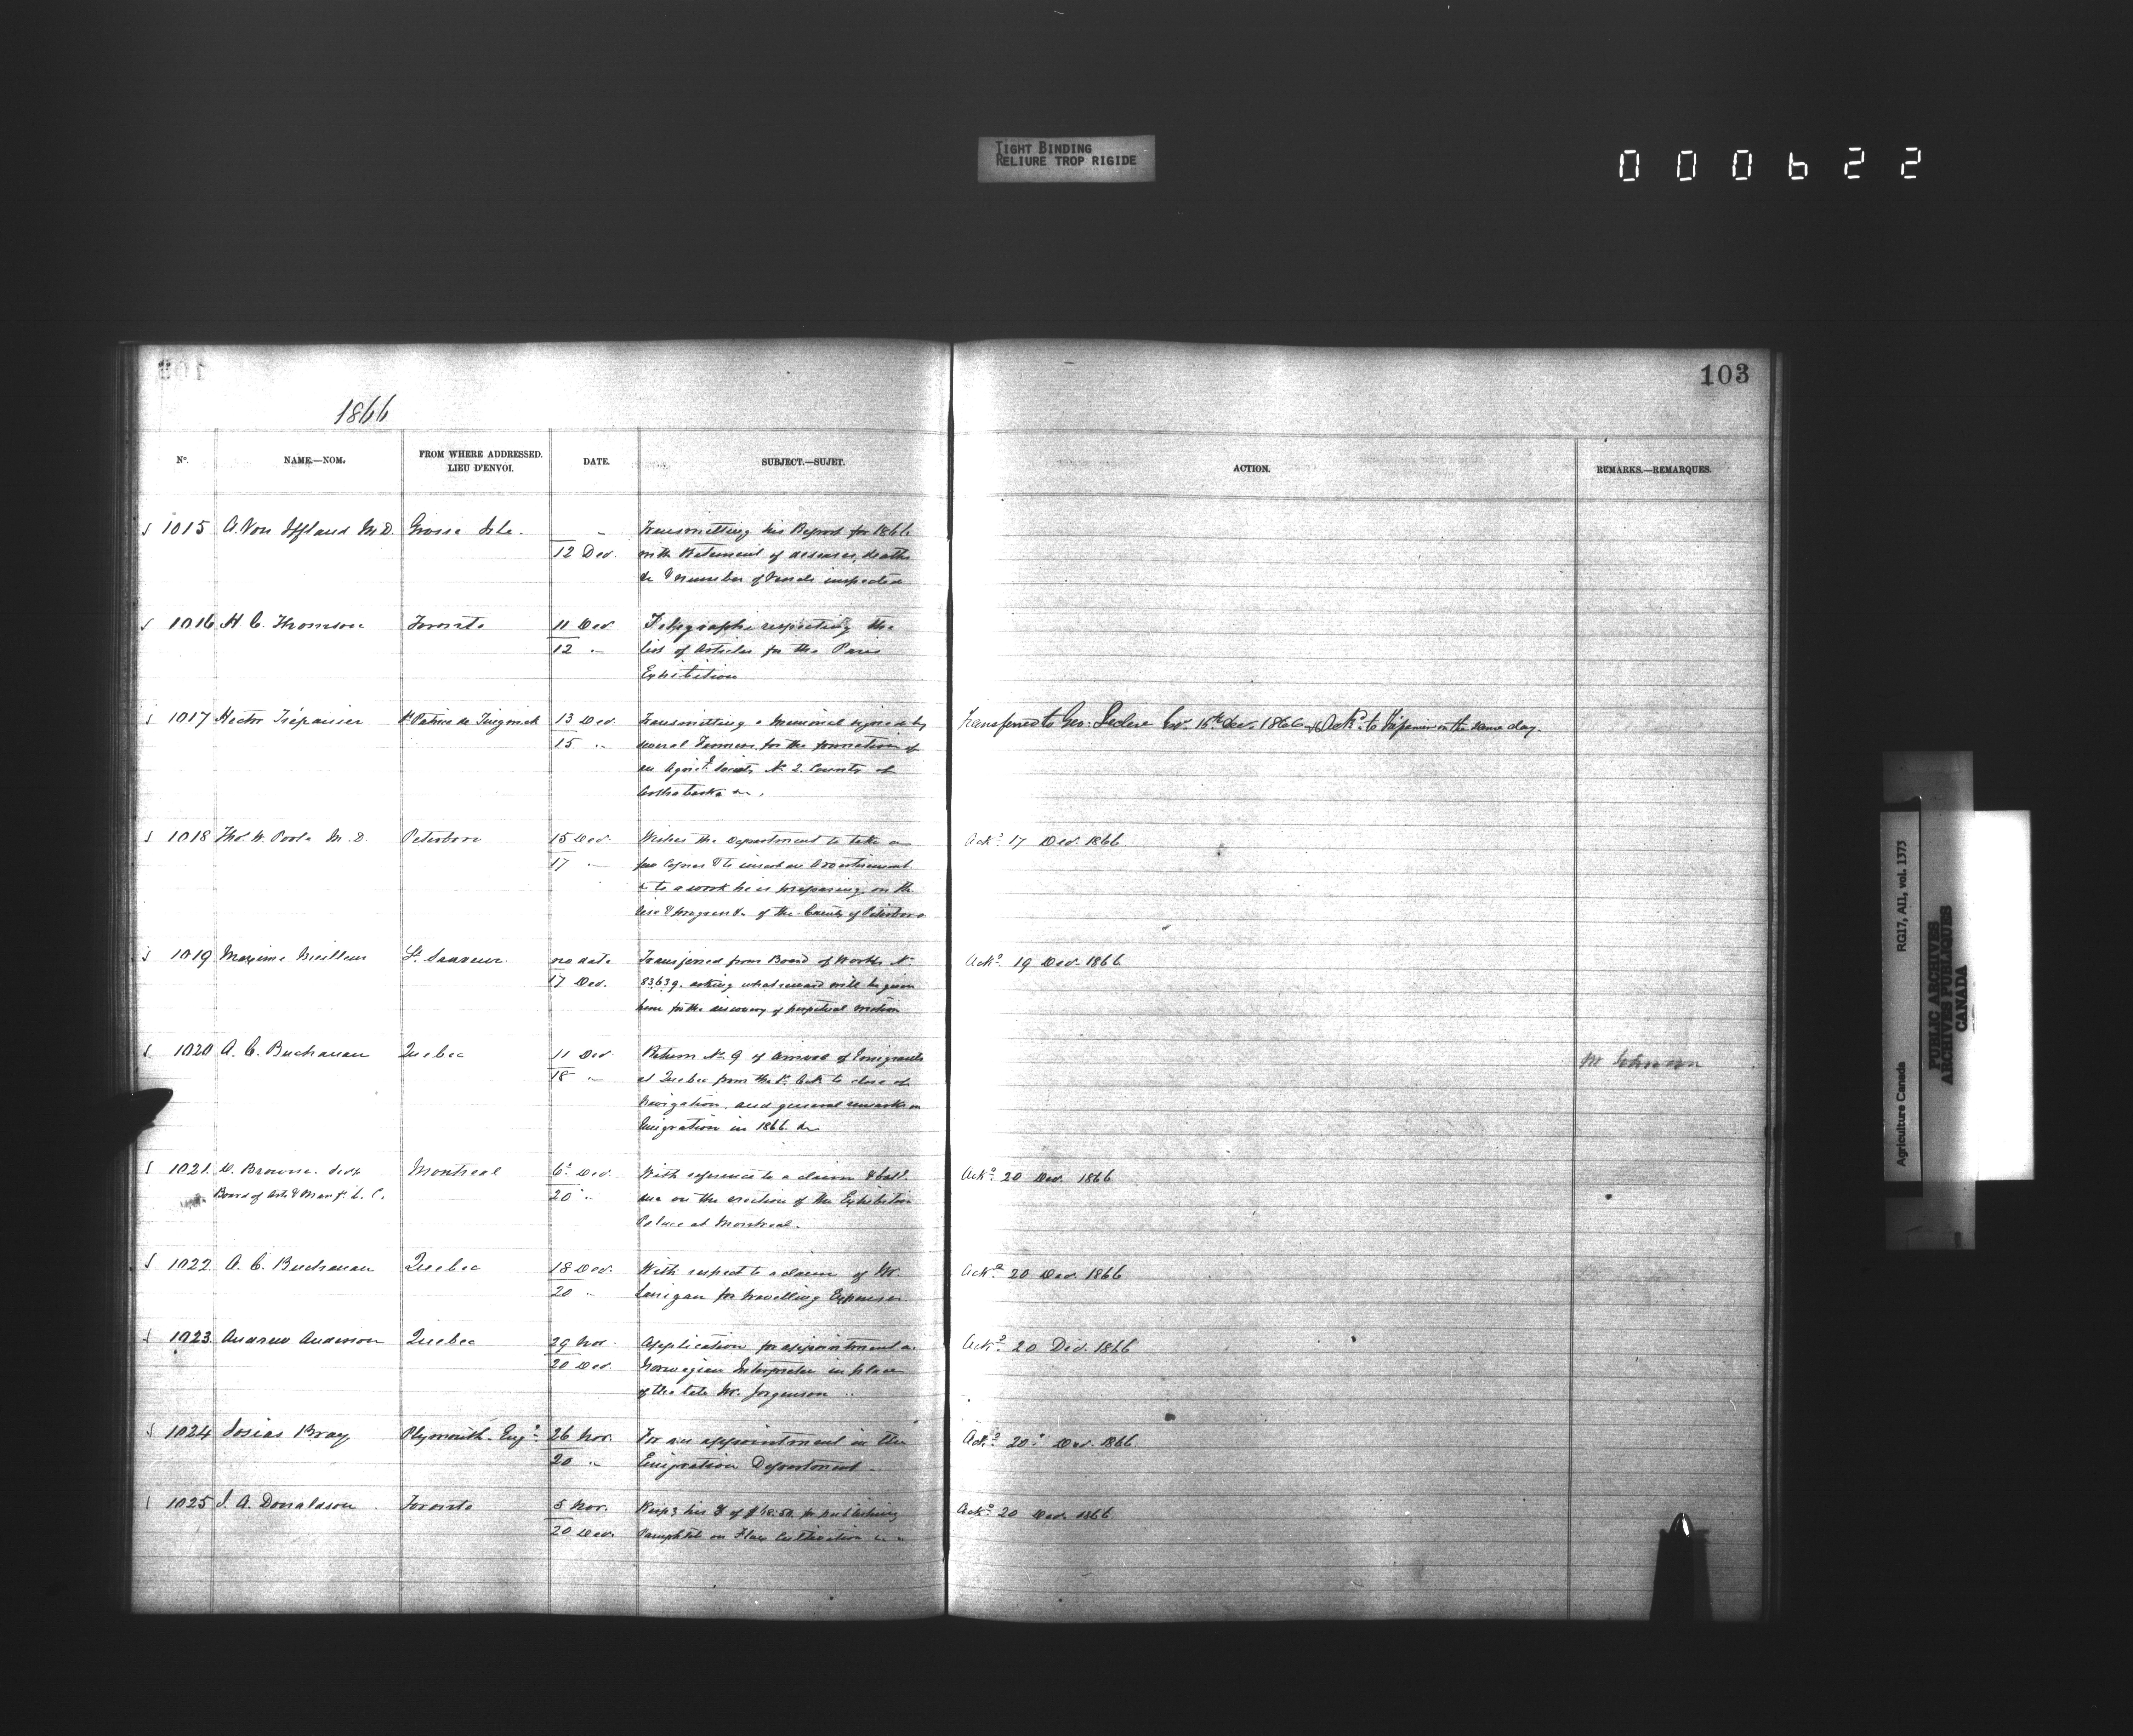 TIGHT BINDING
RELIURE TROP RIGIDE
000622
103
1866
No. NAME.—NOM. FROM WHERE ADDRESSED. LIEU D'ENVOI. DATE. SUBJECT.—SUJET. ACTION. REMARKS.—REMARQUES.
1015 A. Von Iffland M.D. Grosse Isle. Transmitting his Report for 1866
12 Dec. with Statement of diseases, deaths
&c & number of Vessels inspected
1016 H. C. Thomson Toronto 11 Dec. Telegraphs respecting the
12 " list of Articles for the Paris
Exhibition
1017 Hector Trépanier St Patrice de Tingwick 13 Dec. Transmitting a Memorial signed by Transferred to Geo: Leclere Esqr. 15th Dec. 1866 & Ackd. to Trépanier on the same day.
15 " several Farmers for the formation of
an Agricl. Society No 2. County of
Arthabaska &c.
1018 Thos. W. Poole M.D. Peterboro 15 Dec. Wishes the Department to take a Ackd. 17 Dec. 1866
17 " few Copies & to insert an Advertisement
&c to a work he is preparing, on the
rise & progress &c of the County of Peterboro
1019 Maxime Meilleur St. Sauveur no date Transferred from Board of Works No. Ackd. 19 Dec. 1866
17 Dec. 83639. asking what reward will be given
him for the discovery of perpetual motion
1020 A. C. Buchanan Quebec 11 Dec. Return No. 9 of arrival of Emigrants
18 " at Quebec from the to close of
Navigation, and general remarks on
Emigration in 1866. &c
1021 Browne. Secy Montreal 6 Dec. With reference to a claim & Ackd. 20 Dec. 1866
Board of Arts & Manf. L. C. 20 " due on the erection of the Exhibition
Palace at Montreal.
1022 A. C. Buchanan Quebec 18 Dec. With respect to a claim of Mr. Ackd. 20 Dec. 1866
20 " Lanigan for travelling Expenses
1023 Andrew Anderson Quebec 29 Nov. Application for appointment as Ackd. 20 Dec. 1866
20 Dec. Norwegian Interpreter in place
of the late Mr. Jorgenson
1024 Josias Bray Plymouth Eng. 26 Nov. For an appointment in the Ackd. 20 Dec. 1866
20 " Emigration Department
1025 J. A. Donaldson Toronto 5 Nov. his of for publishing Ackd. 20 Dec. 1866
20 Dec. Pamphlet on Flax Cultivation
Agriculture Canada RG17, AII, vol. 1373
PUBLIC ARCHIVES
ARCHIVES PUBLIQUES
CANADA